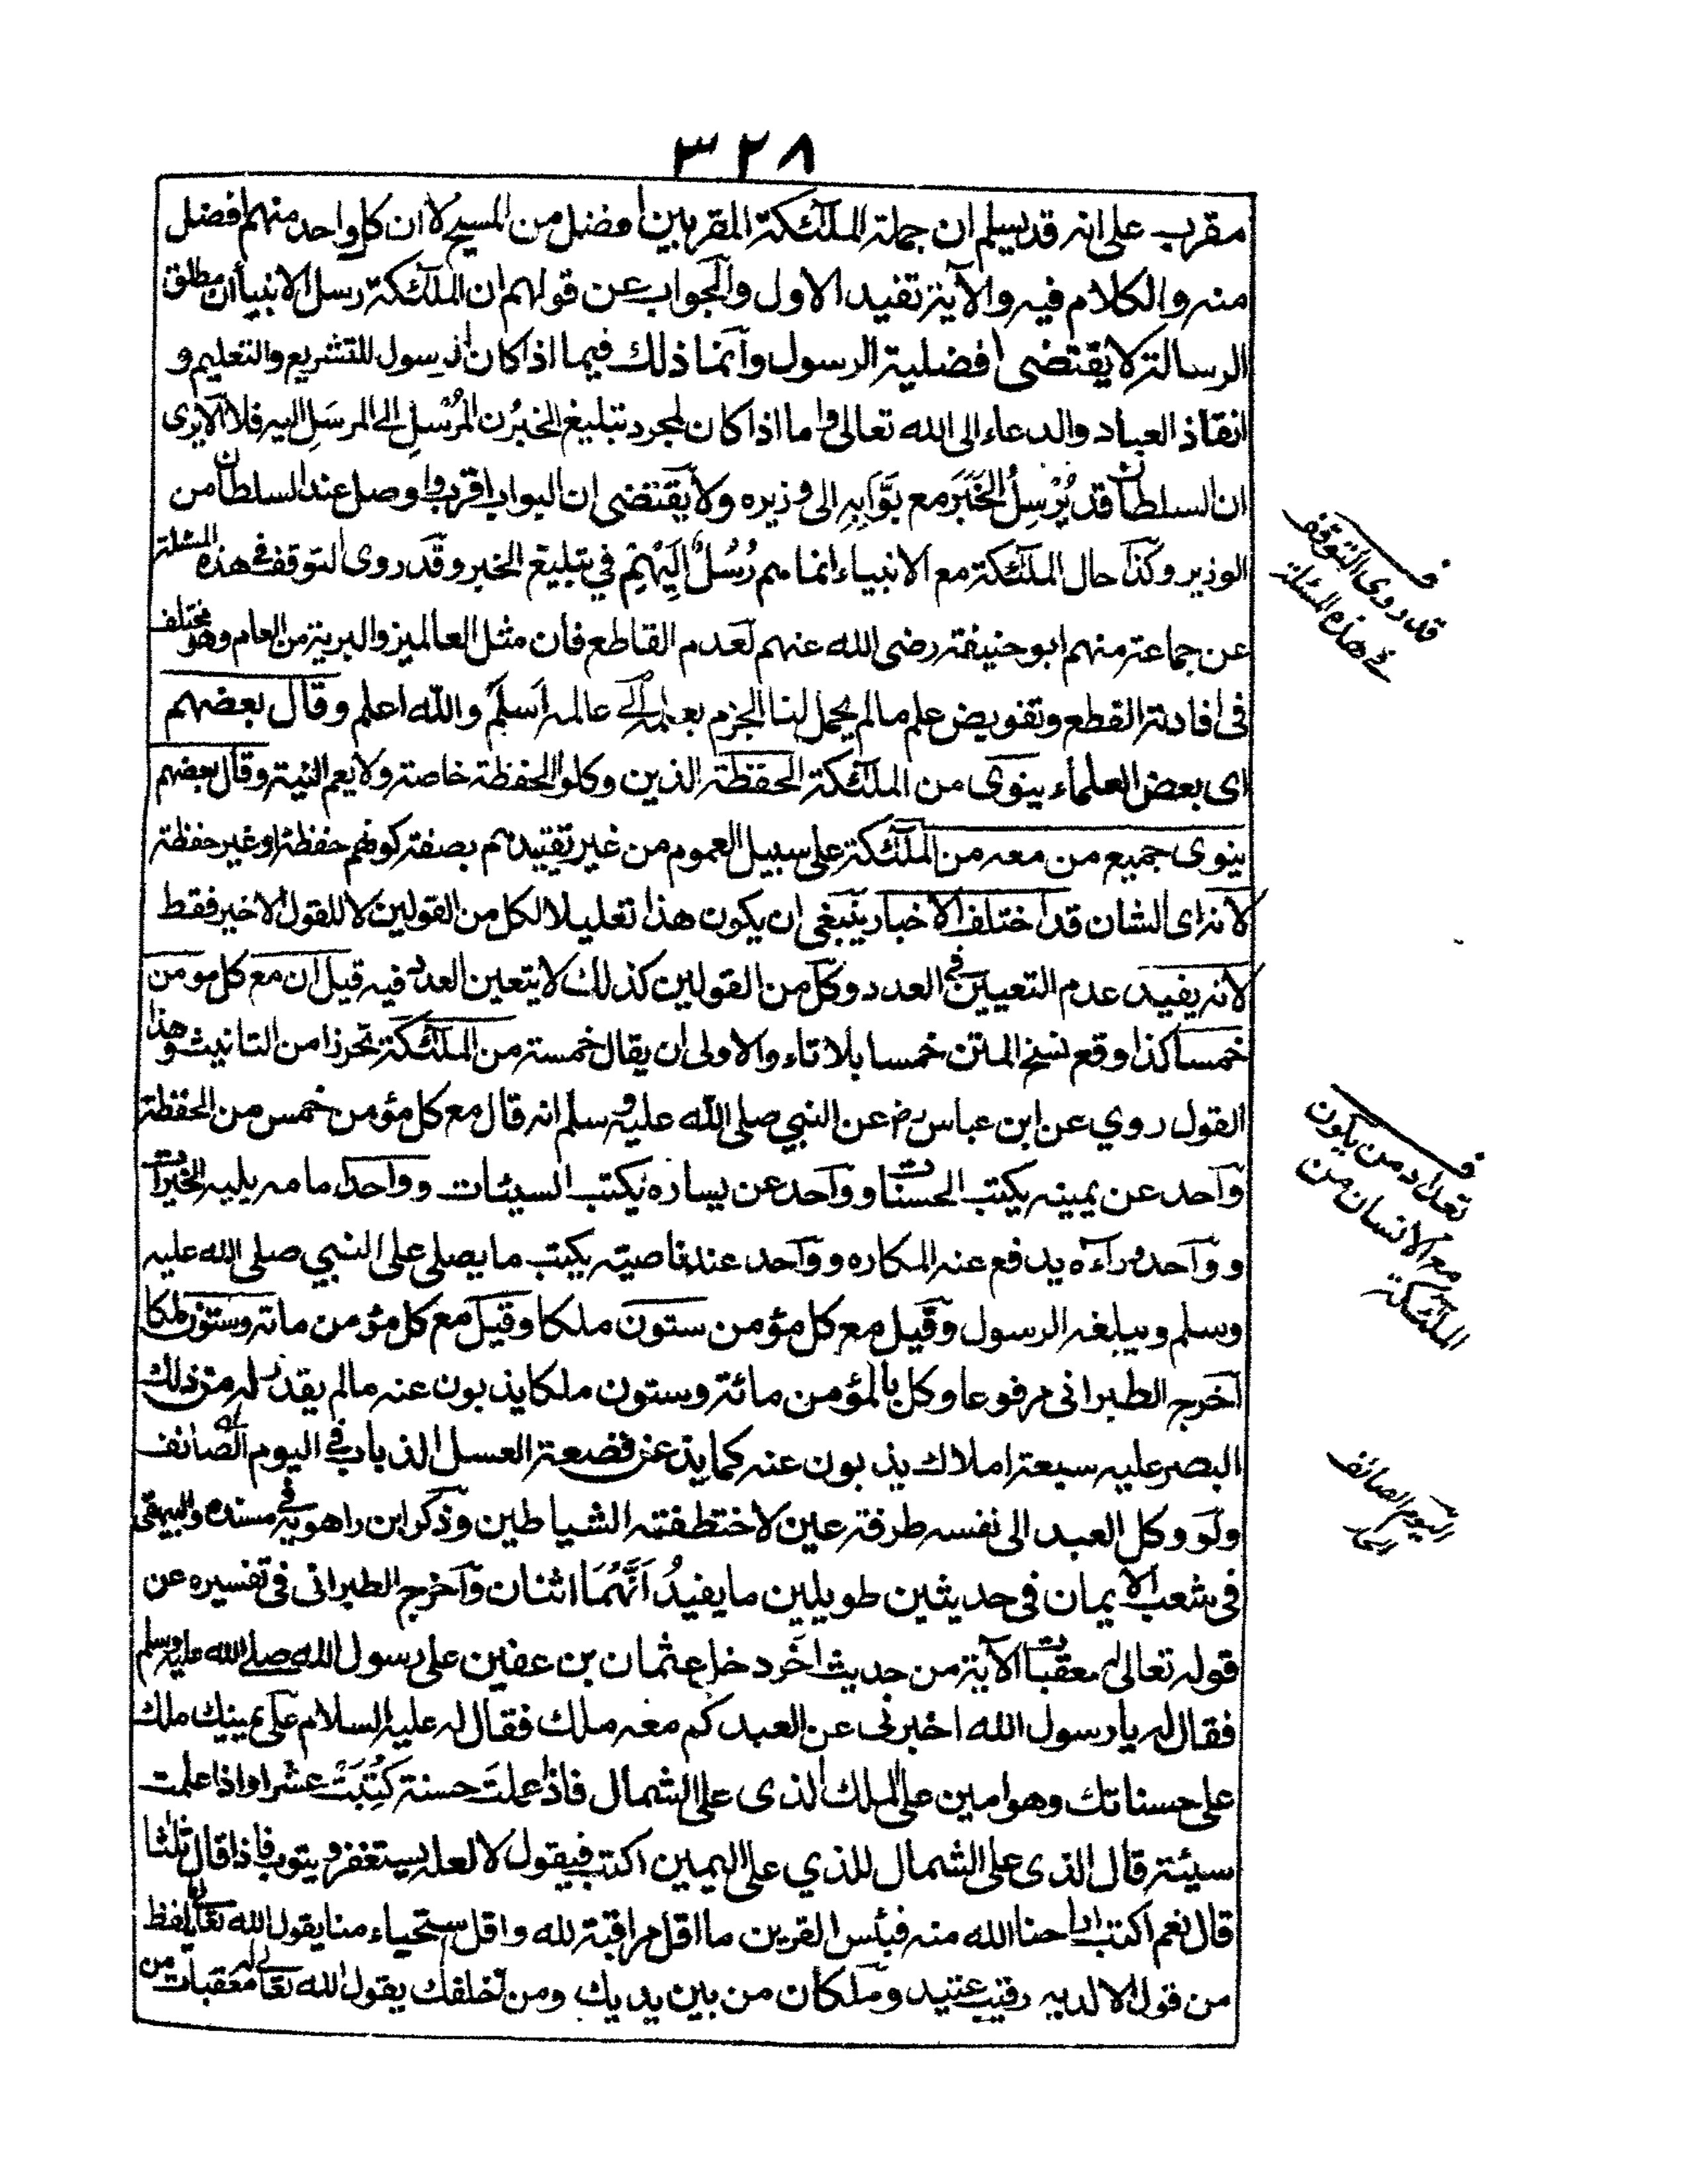 ٣٢٨
مقرب على انه قد يسلم ان جملة الملٓئكة المقربين افضل من المسيح لا ان كل واحد منهم افضل
منه والكلام فيه والآية تفيد الاول والجواب عن قولهم ان الملٓئكة رسل الانبيأ ان مطلق
الرسالة لا يقتضى افضلية الرسول وانما ذلك فيما اذا كان الرسول للتشريع والتعليم و
انقاذ العباد والدعاء الى الله تعالى واما اذا كان لمجرد تبليغ الخبر من المُرْسِلِ الى المرسَلِ اليه فلا الا يرى
ان السلطان قد يُرْسِلُ الخَبَرَ مع بَوَّابِهِ الى وزيره ولا يقتضى ان البواب اقرب واوصل عند السلطان من
الوزير وكذا حال الملٓئكة مع الانبياء انما هم رُسُلٌ اِلَيْهِمْ في تبليغ الخبر وقد روى التوقف فى هذه المسئلة
عن جماعة منهم ابو حنيفة رضى الله عنهم لعدم القاطع فان مثل العالمين والبرية من العام وهو مختلف
فى افادته القطع وتفويض علم ما لم يحمل لنا الجزم بعلمه الى عالمه اَسلَمُ والله اعلم وقال بعضهم
اى بعض العلمأء ينوى من الملٓئكة الحفظة الذين وكلوا لحفظه خاصة ولا يعم النية وقال بعضهم
ينوى جميع من معه من الملٓئكة على سبيل العموم من غير تقييدهم بصفة كونهم حفظة او غير حفظة
لانه اى الشان قد اختلف الاخبار ينبغى ان يكون هذا تعليلا لكل من القولين لا للقول الاخير فقط
لانه يفيد عدم التعيين فى العدد وكل من القولين كذلك لا يتعين العدد فيه قيل ان مع كل مومن
خمسا كذا وقع نسخ المتن خمسا بلا تاء والاولى ان يقال خمسة من الملٓئكة تحرزا من التانيث وهذا
القول روي عن ابن عباس رض عن النبي صلى الله عليه وسلم انه قال مع كل مؤمن خمس من الحفظة
وآحد عن يمينه يكتب الحسنات وواحد عن يساره يكتب السيئات وواحد امامه يليه الخيرات
وواحد ورآءه يدفع عنه المكاره وواحد عند ناصيته يكتب ما يصلى على النبي صلى الله عليه
وسلم ويبلغه الرسول وقيل مع كل مؤمن ستون ملكا وقيل مع كل مؤمن مائة وستون ملكا
اخرج الطبرانى مرفوعا وكل بالمؤمن مائة وستون ملكا يذبون عنه ما لم يقدر له من ذلك
البصر عليه سبعة املاك يذبون عنه كما يذب عن قصعة العسل الذباب فى اليوم الصائف
ولو وكل العبد الى نفسه طرفة عين لاختطفته الشياطين وذكر ابن راهويه فى مسنده والبيهقى
فى شعب الايمان فى حديثين طويلين ما يفيدُ اَنَّهُمَا اثنان واخرج الطبرانى فى تفسيره عن
قوله تعالى له معقبات الآية من حديث اخر دخل عثمان بن عفين على رسول الله صلى الله عليه وسلم
فقال له يا رسول الله اخبرنى عن العبد كم معه ملك فقال له عليه السلام على يمينك ملك
على حسناتك وهو امين على الملك الذى على الشمال فاذا عملتَ حسنة كُتِبَتْ عشرا واذا عملت
سيئة قال الذى على الشمال للذي على اليمين اكتب فيقول لا لعله يستغفر ويتوب فاذا قال ثلثا
قال نعم اكتب اراحنا الله منه فبئس القرين ما اقل مراقبة لله واقل استحياء منا يقول الله تعالى ما يلفظ
من قول الا لديه رقيب عتيد وملكان من بين يديك ومن خلفك يقول الله تعالى له معقبات من
ف
قد روى التوقف
فى هذه المسئلة
ف
تعداد من يكون
مع الانسان من
الملٓئكة
اليوم الصائف